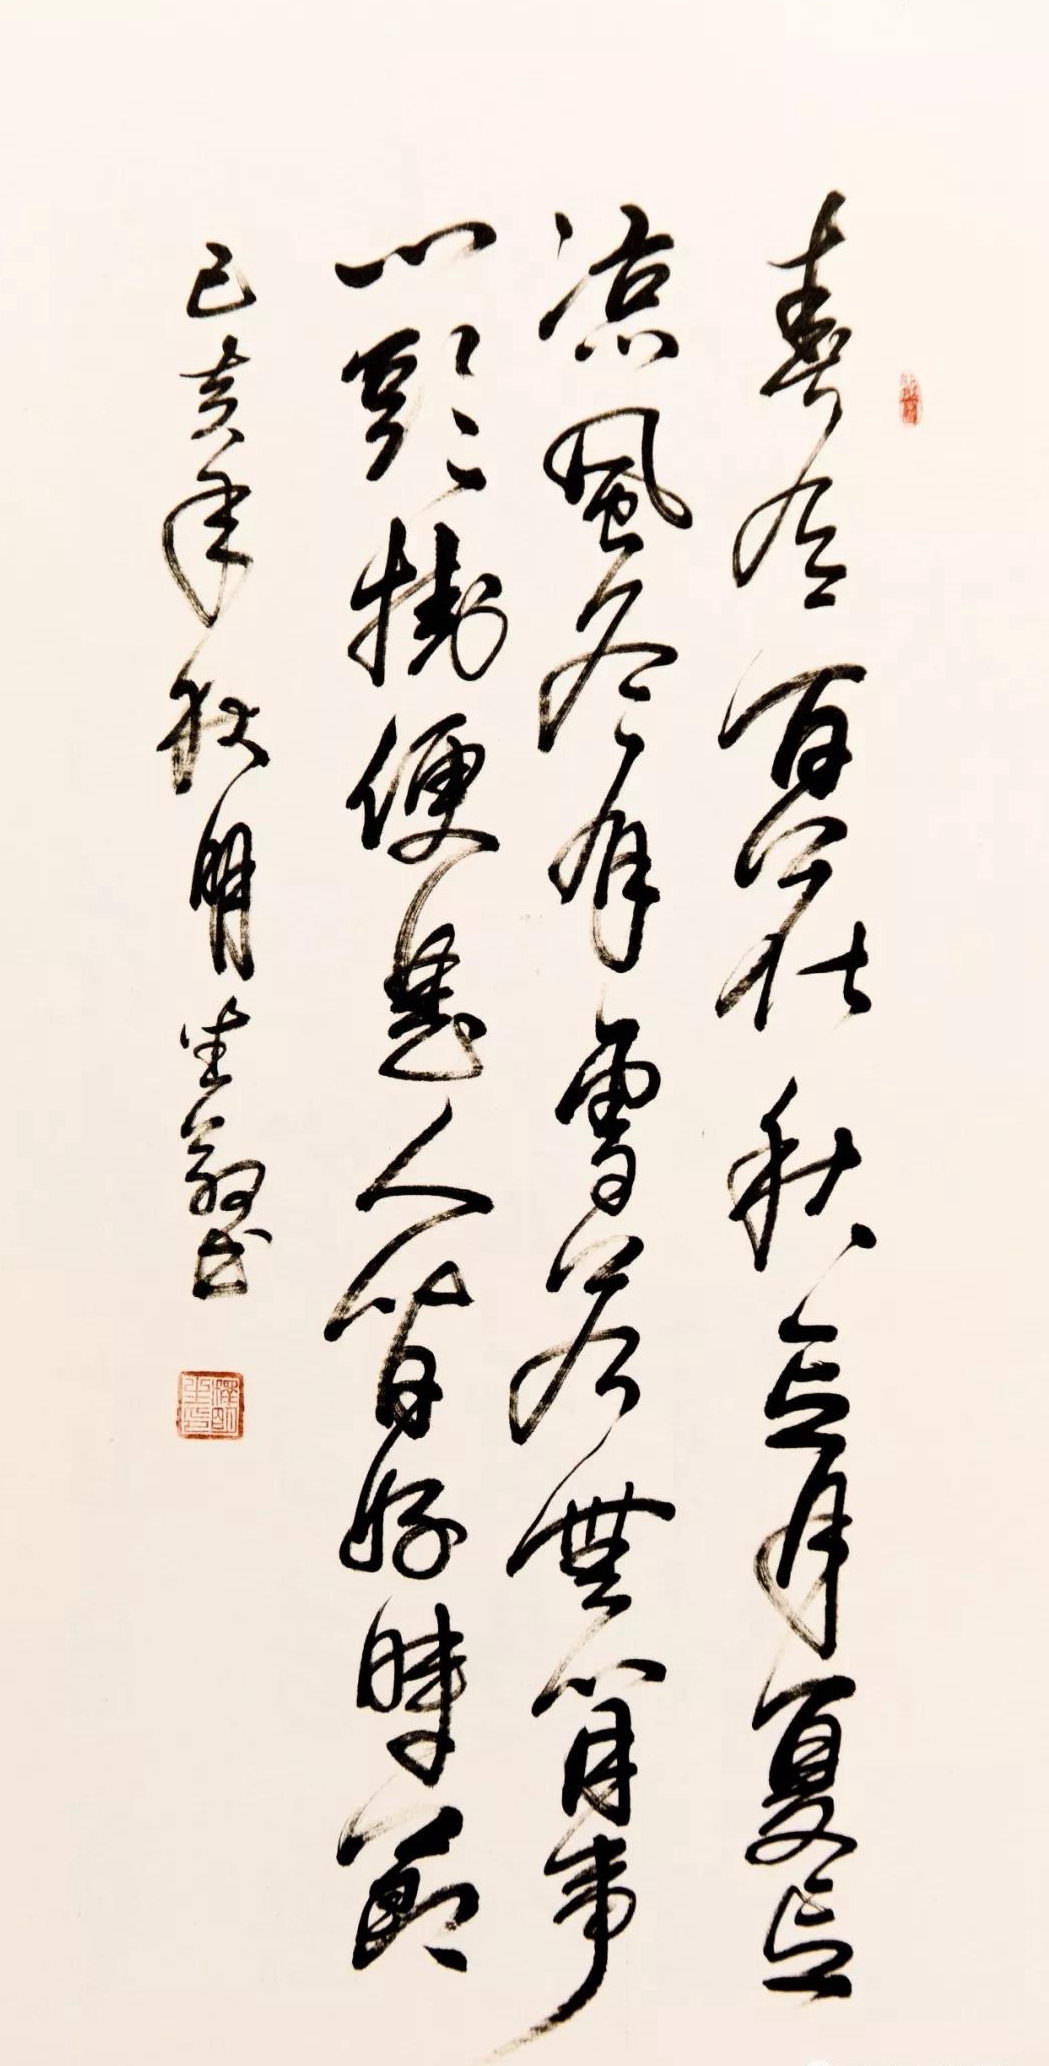 春有百花秋有月夏有
凉風冬有雪若無閒事
心頭掛便是人間好時節
己亥年秋明生敬书